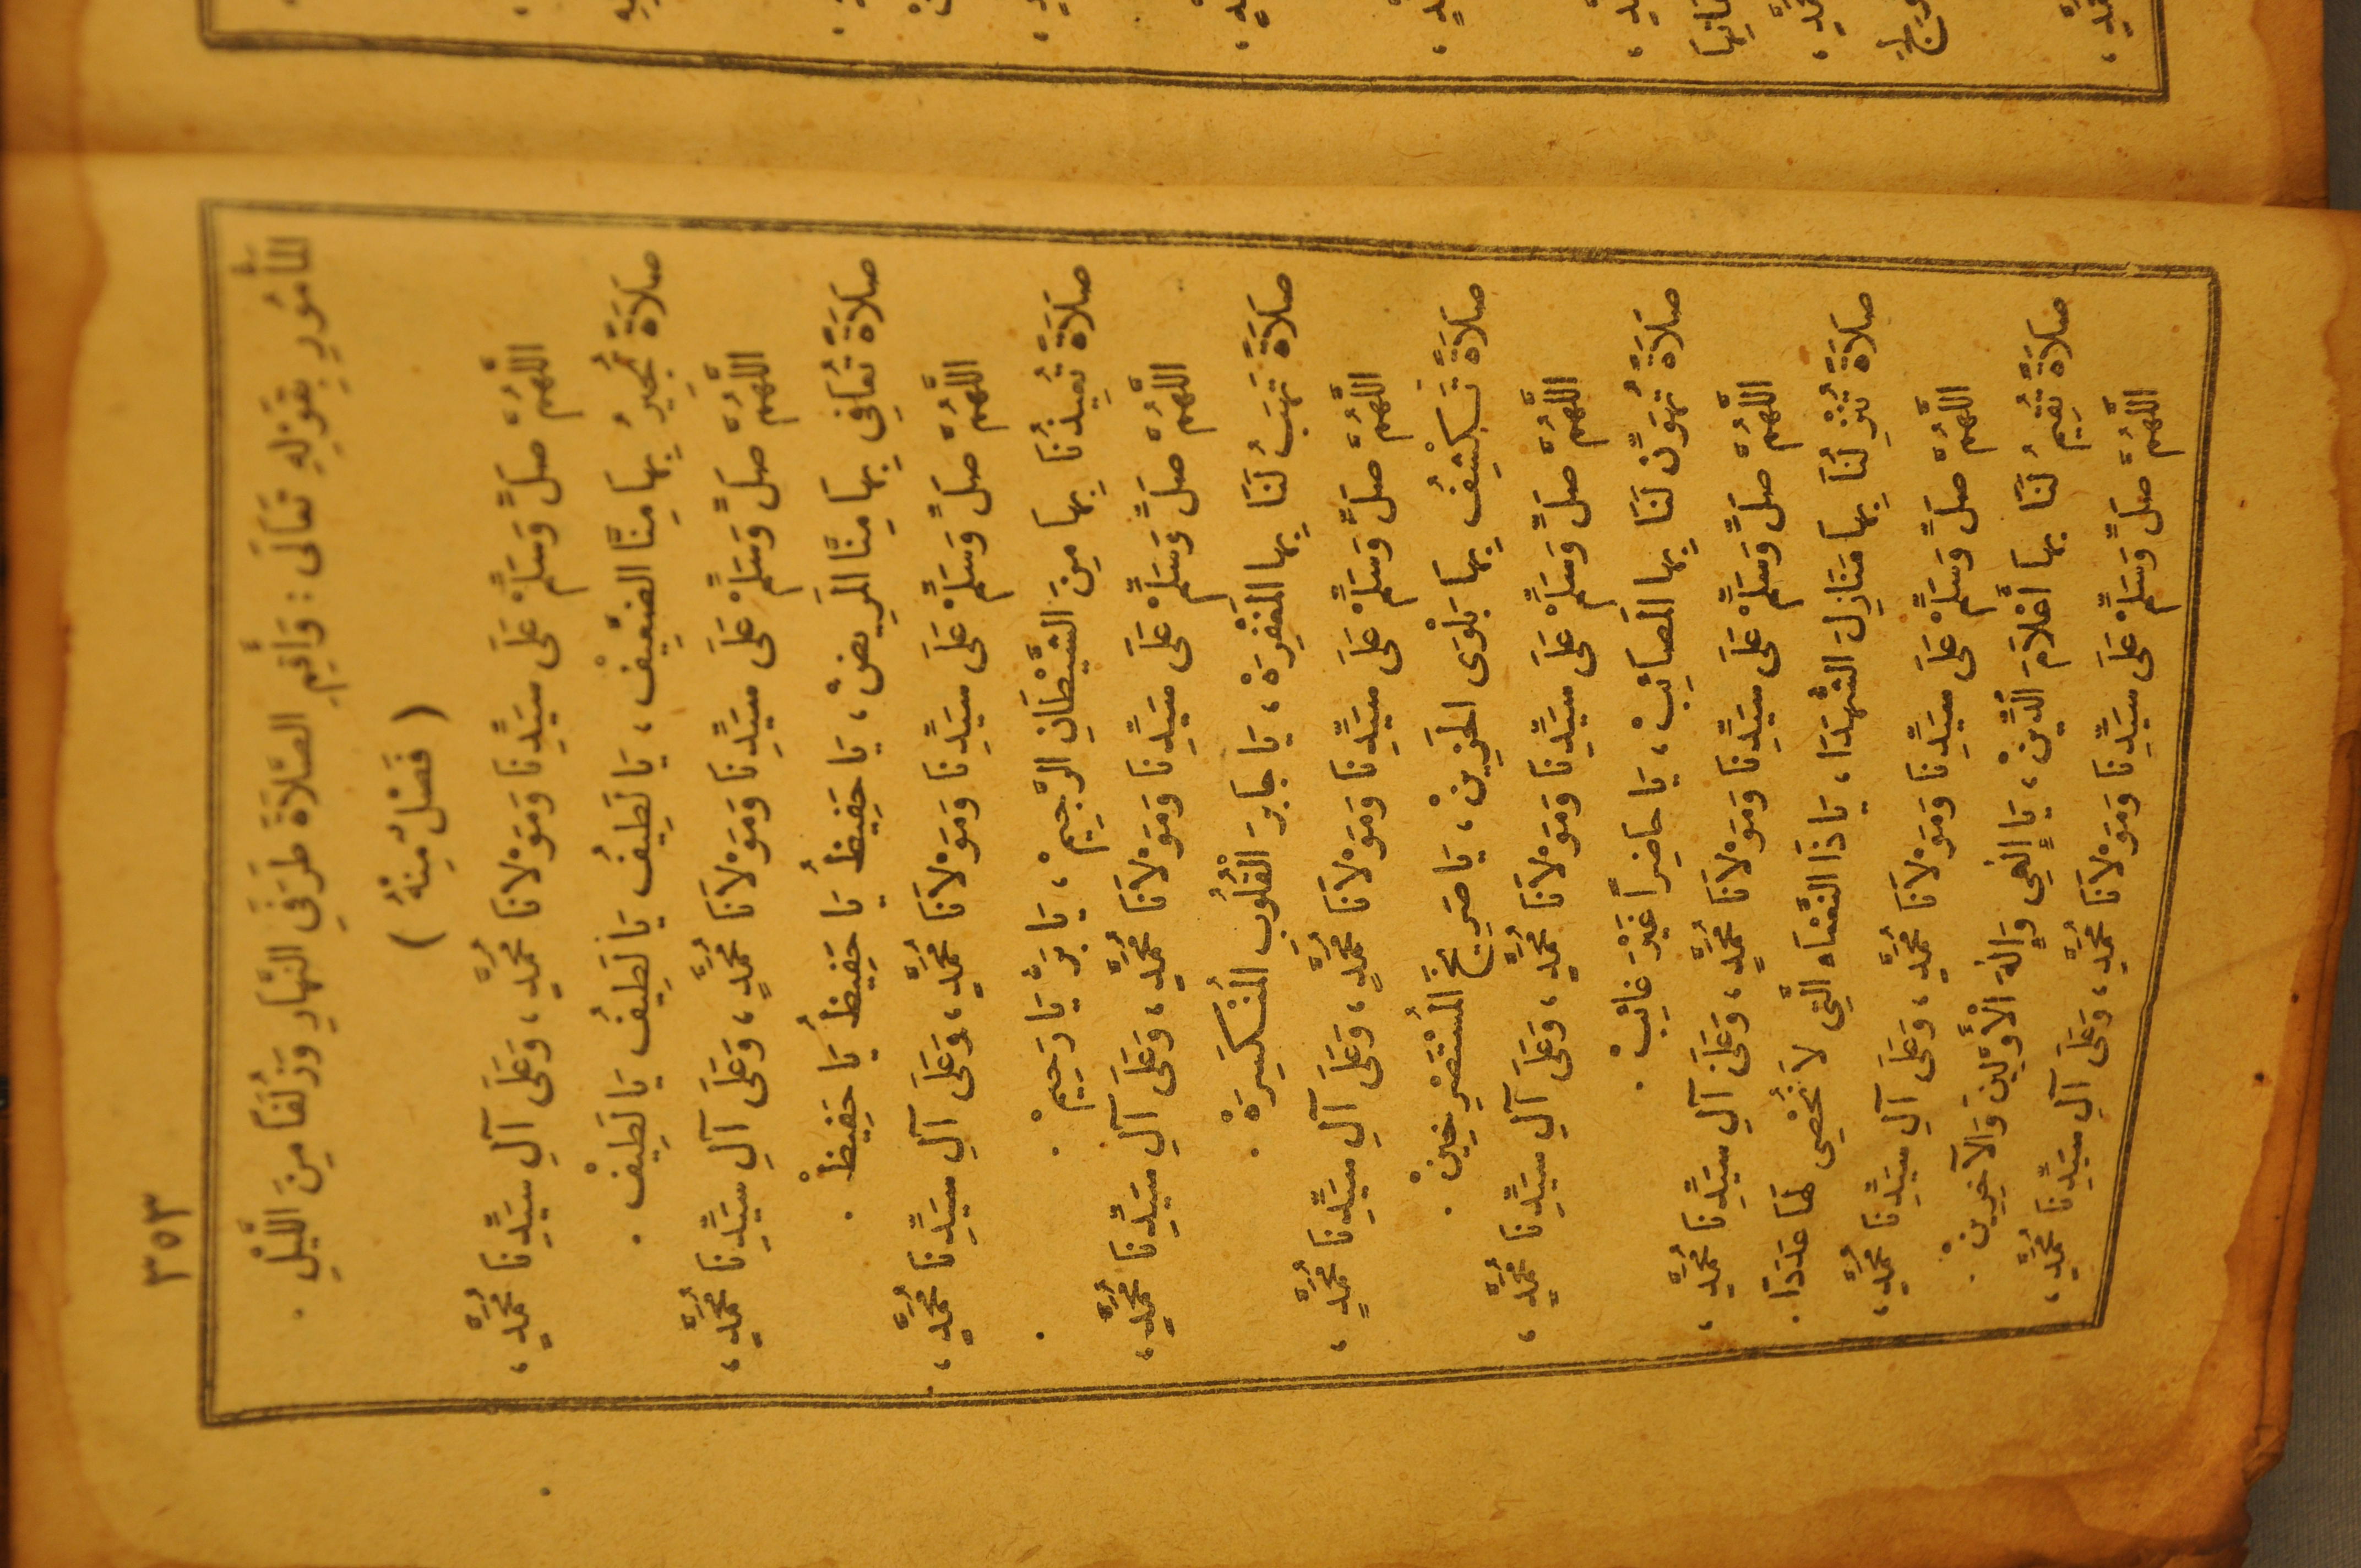 ٣٥٣
المَأْمُورِ بِقَوْلِهِ تَعَالَى : وَأَقِمِ الصَّلاَةَ طَرَفَيِ النَّهَارِ وَزُلَفًا مِنَ اللَّيْلِ .
( فَصْلٌ مِنْهُ )
اللَّهُمَّ صَلِّ وَسَلِّمْ عَلَى سَيِّدِنَا وَمَوْلاَنَا مُحَمَّدٍ ، وَعَلَى آلِ سَيِّدِنَا مُحَمَّدٍ ،
صَلاَةً تُجِيرُ بِهَا مِنَّا الضَّعِيفْ ، يَا لَطِيفُ يَا لَطِيفُ يَا لَطِيفْ .
اللَّهُمَّ صَلِّ وَسَلِّمْ عَلَى سَيِّدِنَا وَمَوْلاَنَا مُحَمَّدٍ ، وَعَلَى آلِ سَيِّدِنَا مُحَمَّدٍ ،
صَلاَةً تُعَافِي بِهَا مِنَّا المَرِيضْ ، يَا حَفِيظُ يَا حَفِيظُ يَا حَفِيظْ .
اللَّهُمَّ صَلِّ وَسَلِّمْ عَلَى سَيِّدِنَا وَمَوْلاَنَا مُحَمَّدٍ ، وَعَلَى آلِ سَيِّدِنَا مُحَمَّدٍ ،
صَلاَةً تُعِيذُنَا بِهَا مِنَ الشَّيْطَانِ الرَّجِيمْ ، يَا بَرُّ يَا رَحِيمْ .
اللَّهُمَّ صَلِّ وَسَلِّمْ عَلَى سَيِّدِنَا وَمَوْلاَنَا مُحَمَّدٍ ، وَعَلَى آلِ سَيِّدِنَا مُحَمَّدٍ ،
صَلاَةً تَهَبُ لَنَا بِهَا المَغْفِرَهْ ، يَا جَابِرَ القُلُوبِ المُنْكَسِرَهْ .
اللَّهُمَّ صَلِّ وَسَلِّمْ عَلَى سَيِّدِنَا وَمَوْلاَنَا مُحَمَّدٍ ، وَعَلَى آلِ سَيِّدِنَا مُحَمَّدٍ ،
صَلاَةً تَكْشِفُ بِهَا بَلْوَى الحَزِينْ ، يَا صَرِيخَ المُسْتَصْرِخِينْ .
اللَّهُمَّ صَلِّ وَسَلِّمْ عَلَى سَيِّدِنَا وَمَوْلاَنَا مُحَمَّدٍ ، وَعَلَى آلِ سَيِّدِنَا مُحَمَّدٍ ،
صَلاَةً تُهَوِّنُ لَنَا بِهَا المَصَائِبْ ، يَا حَاضِراً غَيْرَ غَائِبْ .
اللَّهُمَّ صَلِّ وَسَلِّمْ عَلَى سَيِّدِنَا وَمَوْلاَنَا مُحَمَّدٍ ، وَعَلَى آلِ سَيِّدِنَا مُحَمَّدٍ ،
صَلاَةً تُنْزِلُنَا بِهَا مَنَازِلَ الشُّهَدَا ، يَا ذَا النَّعْمَاءِ الَّتِي لاَ تُحْصَى لَهَا عَدَدَا .
اللَّهُمَّ صَلِّ وَسَلِّمْ عَلَى سَيِّدِنَا وَمَوْلاَنَا مُحَمَّدٍ ، وَعَلَى آلِ سَيِّدِنَا مُحَمَّدٍ ،
صَلاَةً تُقِيمُ لَنَا بِهَا أَعْلاَمَ الدِّينْ ، يَا إِلَهِي وَإِلَهَ الأَوَّلِينَ وَالآخِرِينْ .
اللَّهُمَّ صَلِّ وَسَلِّمْ عَلَى سَيِّدِنَا وَمَوْلاَنَا مُحَمَّدٍ ، وَعَلَى آلِ سَيِّدِنَا مُحَمَّدٍ ،